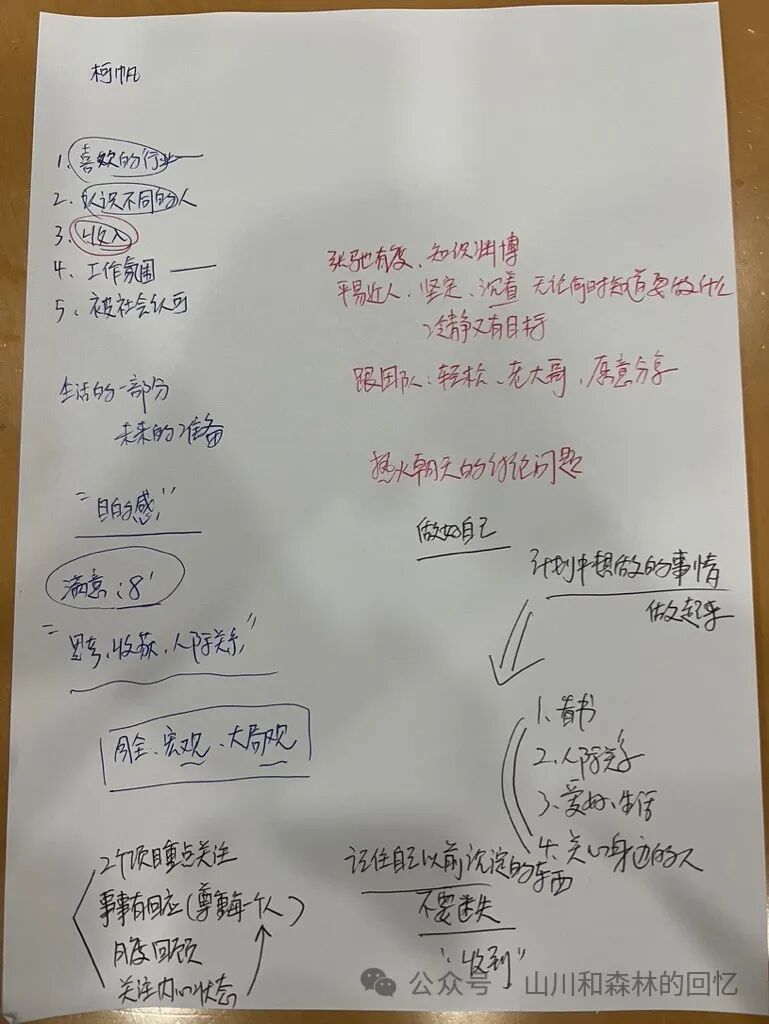 柯帆
1. 喜欢的行业
2. 认识不同的人
3. 收入
4. 工作氛围
5、被社会认可
生活的一部分
未来的准备
"目的感"
满意:8'
"思考、收获、人际关系"
周全、宏观、大局观
2个项目重点关注
事事有回应(尊重每一个人)
月度回顾
关注内心状态
张驰有度、知识渊博
平易近人、坚定、沉着 无论何时知道要做什么
冷静又有目标
跟团队:轻松、老大哥、愿意分享
热火朝天的讨论问题
做好自己
计划中想做的事情
做起来
1、看书
2、人际关系
3、爱好、生活
4、关心身边的人
记住自己以前沉淀的东西
不要迷失
"收到"
公众号 · 山川和森林的回忆